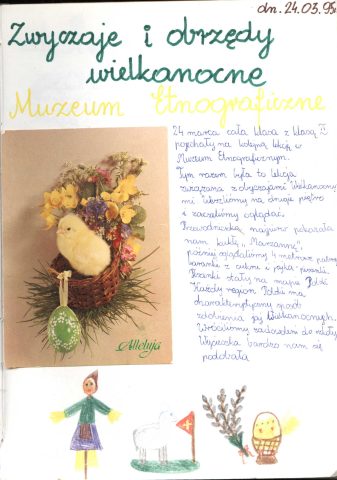 dn. 24.03.95
Zwyczaje i obrzędy
wielkanocne
Muzeum Etnograficzne
24 marca cała klasa z klasą
pojechały na kolejną lekcję w
Muzeum Etnograficznym.
Tym razem była to lekcja
związana z obyczajami Wielkanocny
mi weszliśmy na drugie piętro
i zaczęliśmy oglądać.
Przewodniczka najpierw pokazała
nam kukłę „Marzannę",
później oglądaliśmy 4 metrowe palmy
baranki z cukru i jajka-pisanki.
Pisanki stały na mapie Polski
Każdy region Polski ma
charakterystyczny sposób
zdobienia jaj Wielkanocnych.
Wróciliśmy zadowoleni do szkoły
Wycieczka bardzo nam się
podobała
Alleluja